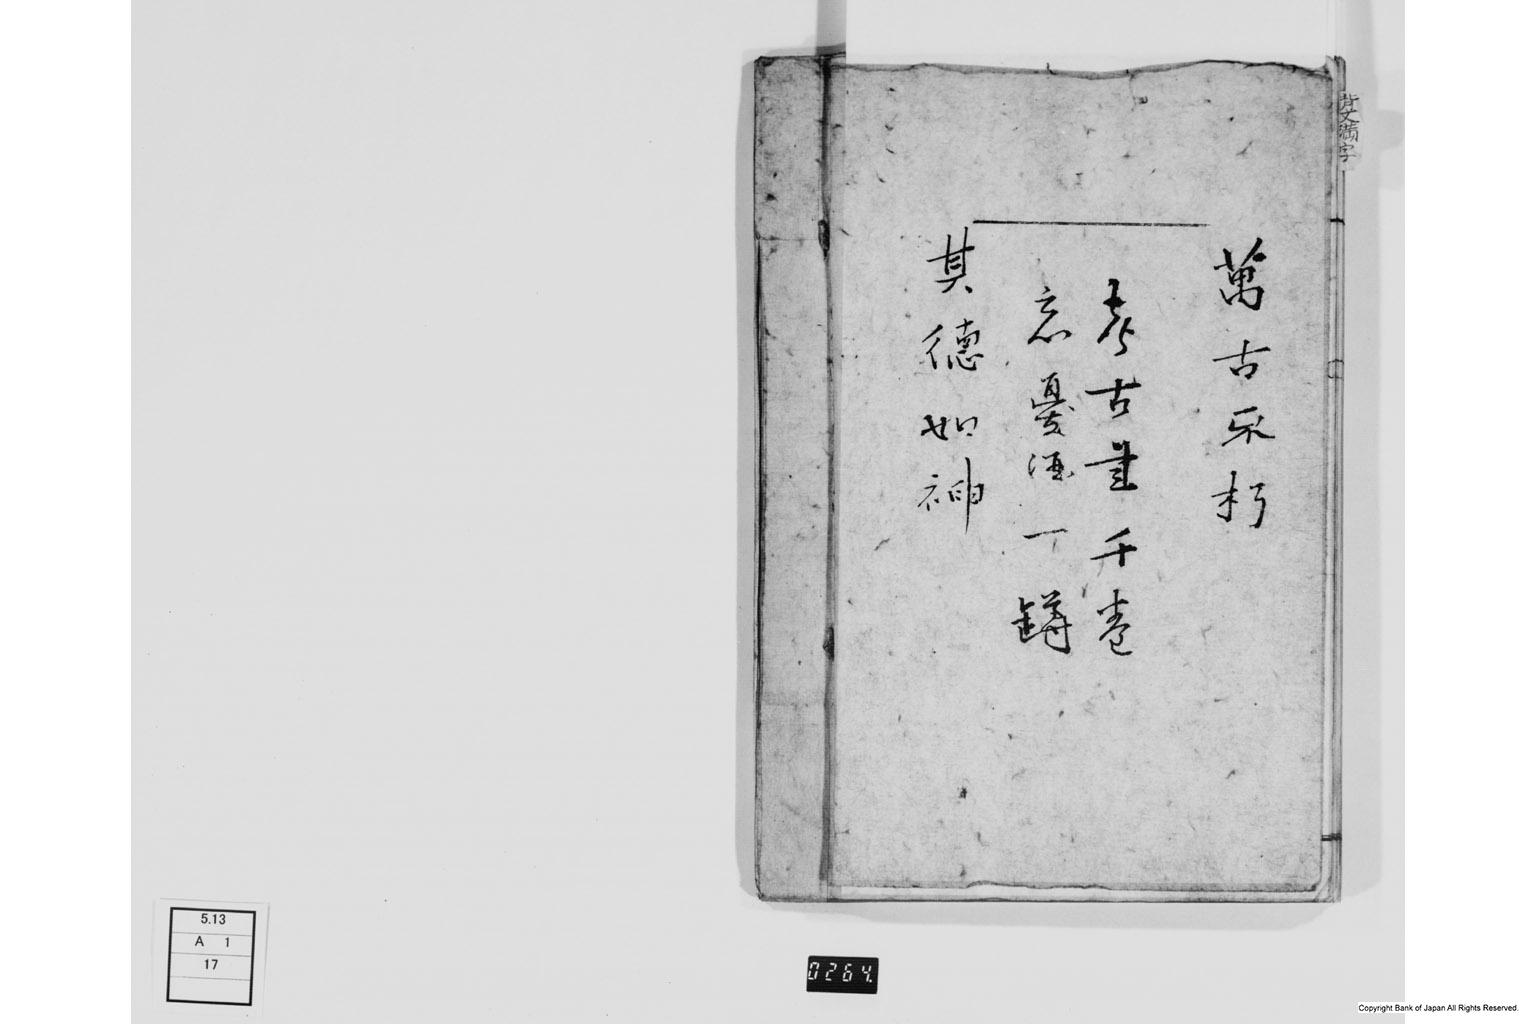 背文満字
萬古不朽
考古書千卷
忘憂酒一罇
其德如神
5.13
A 1
17
0264.
Copyright Bank of Japan All Rights Reserved.